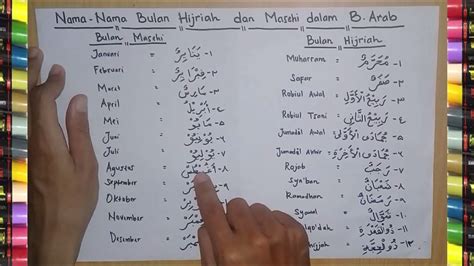 Nama-Nama Bulan Hijriah dan Masehi dalam B. Arab
Bulan Masehi
Januari = ١- يَنَايِرُ
Februari = ٢- فِبْرَايِرُ
Maret = ٣- مَارِسُ
April = ٤- أَبْرِيْلُ
Mei = ٥- مَايُوْ
Juni = ٦- يُوْنِيُوْ
Juli = ٧- يُوْلِيُوْ
Agustus = ٨-
September = ٩-
Oktober =
November =
Desember =
Bulan Hijriah
Muharram = ١- مُحَرَّمٌ
Safar = ٢- صَفَرٌ
Robiul Awal = ٣- رَبِيْعُ الْأَوَّلِ
Robiul Tsani = ٤- رَبِيْعُ الثَّانِي
Jumadal Awal = ٥- جُمَادَى الْأُوْلَى
Jumadal Akhir = ٦- جُمَادَى الْآخِرَةِ
Rojab = ٧- رَجَبٌ
Sya'ban = ٨- شَعْبَانُ
Ramadhan = ٩- رَمَضَانُ
Syawal = ١٠- شَوَّالٌ
١١- ذُوالْقَعْدَةِ
١٢- ذُوالْحِجَّةِ